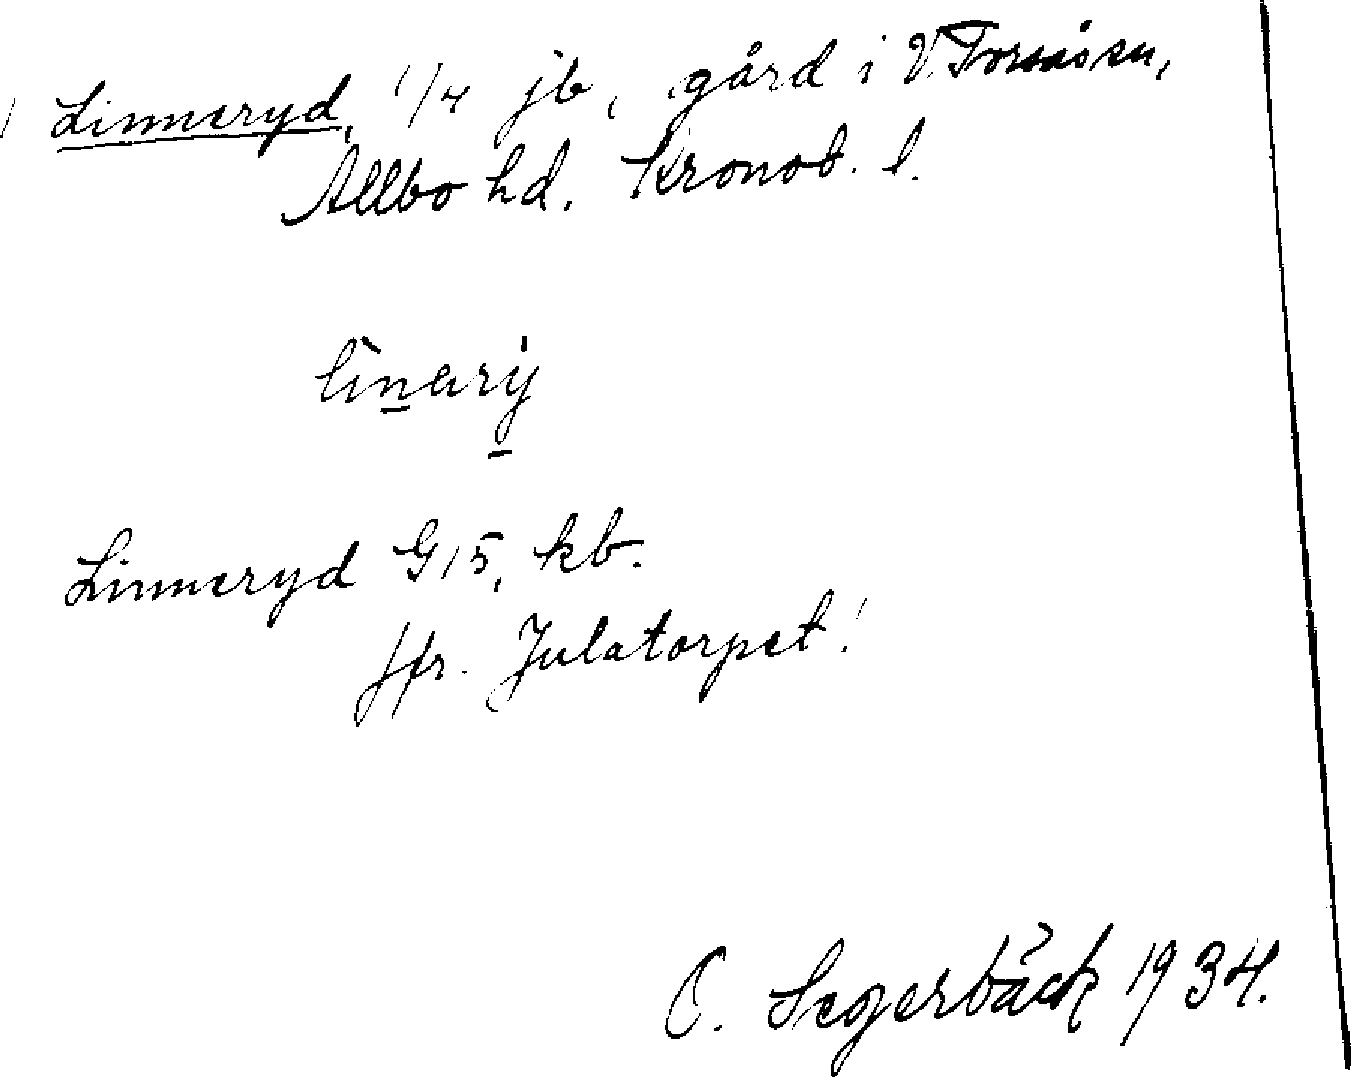 Linneryd, 1/4 jb, gård i V. Torsås sn,
Allbo hd. Kronob. l.
Linneryd G15, kb.
Jfr. Julatorpet!
O. Segerbäck 1934.